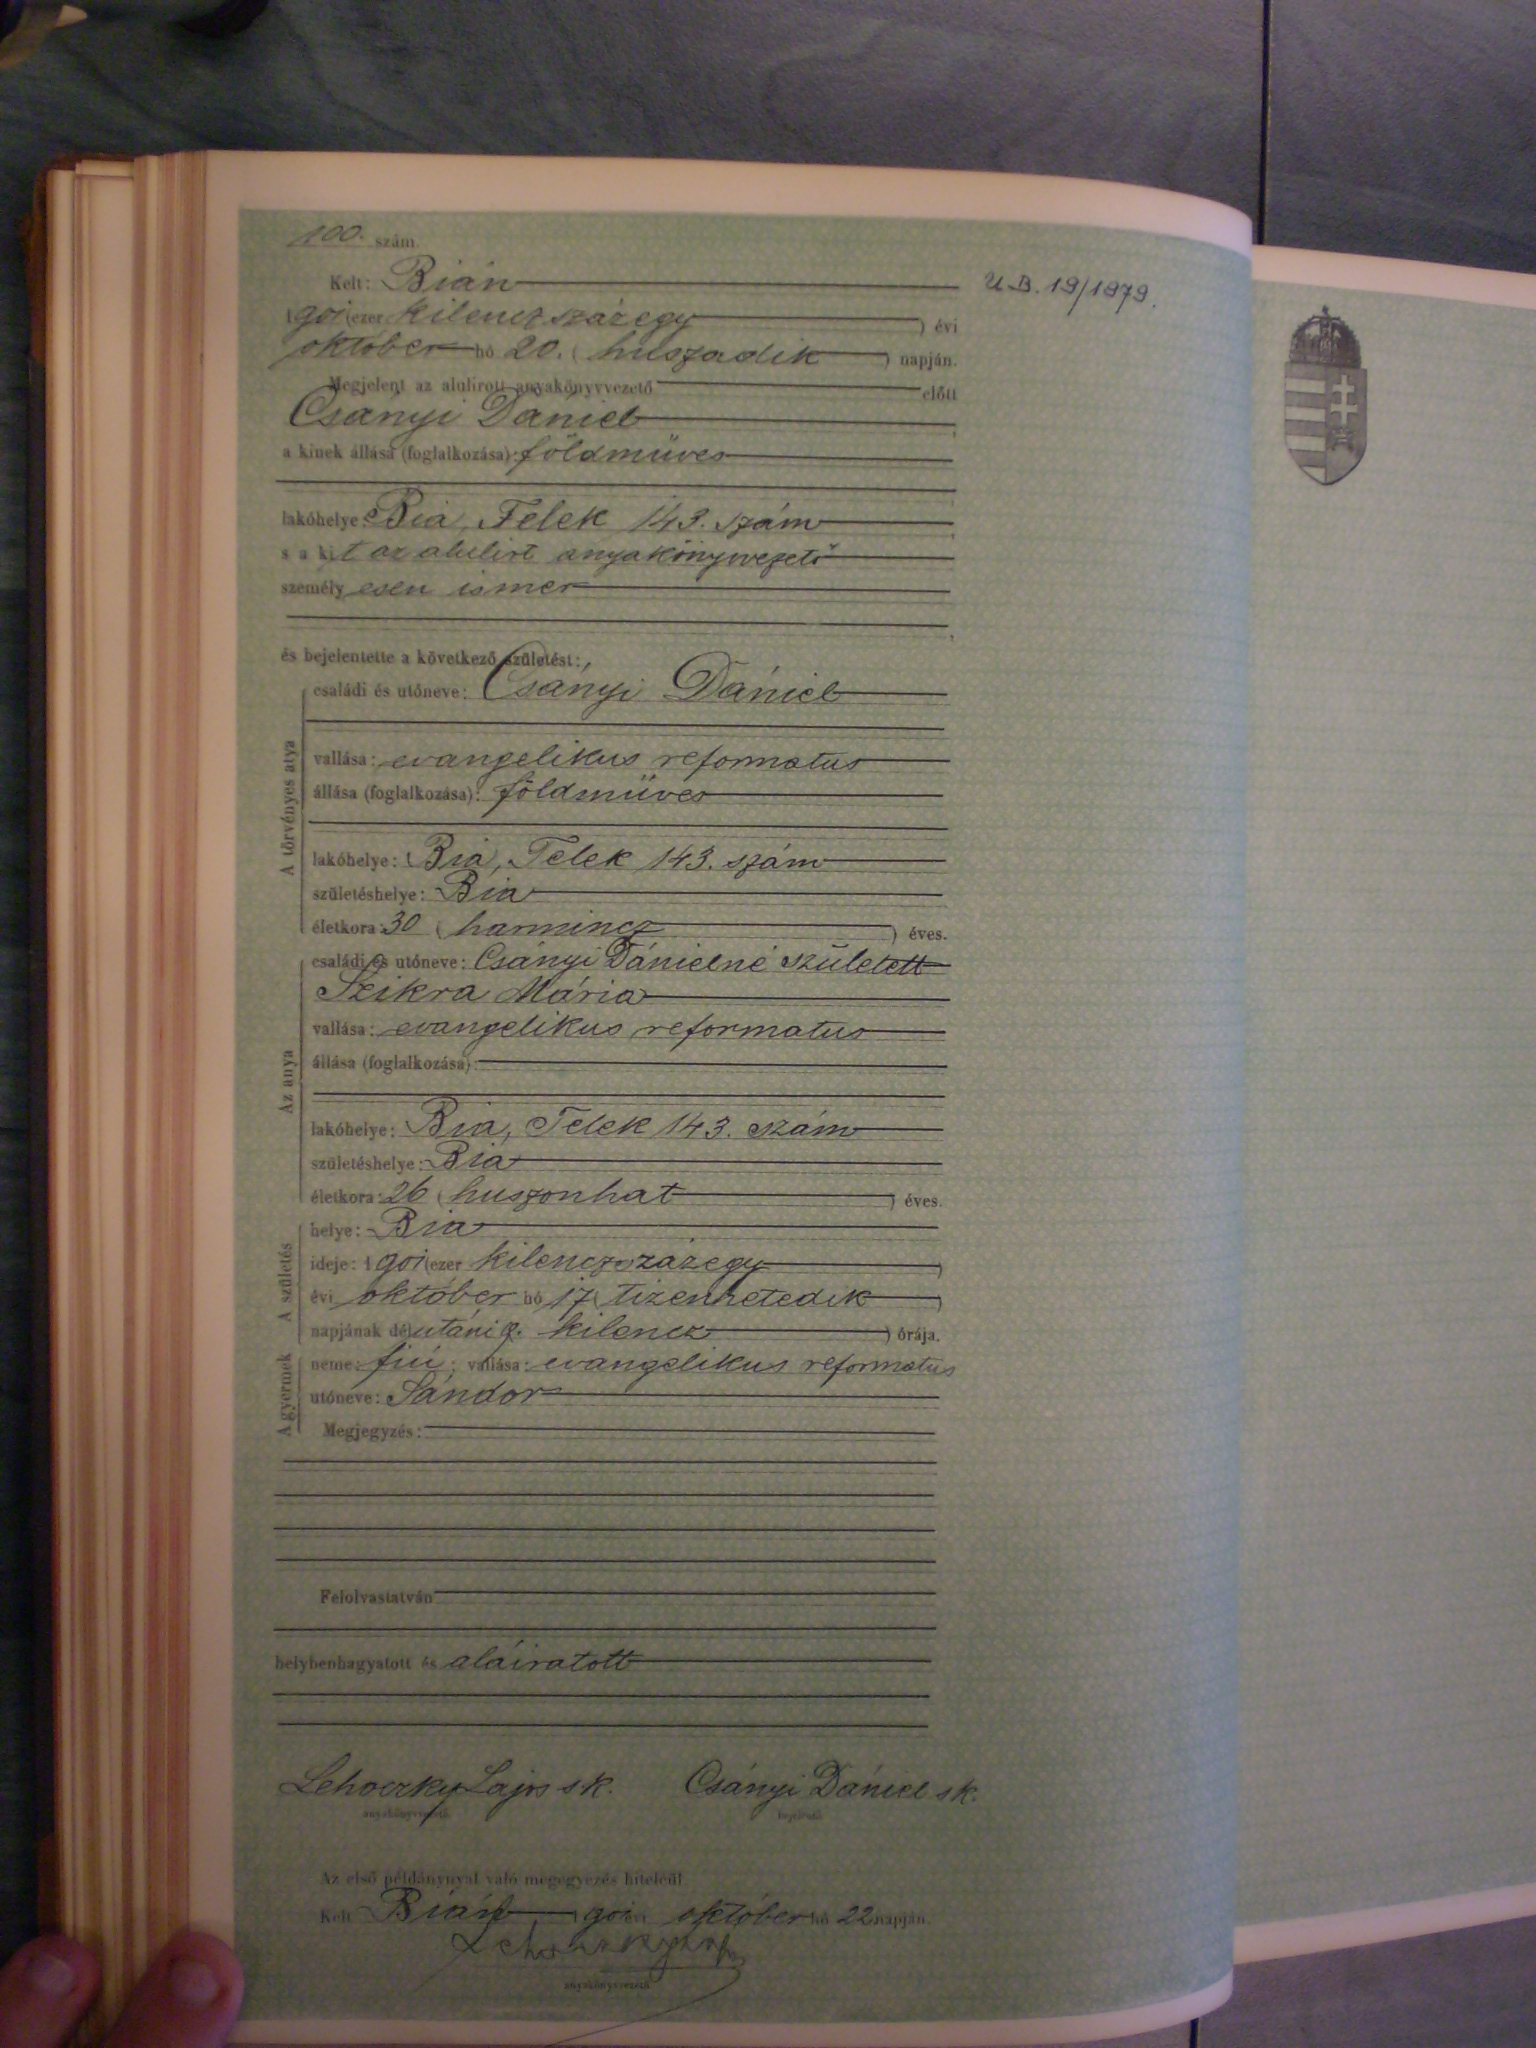 100. szám.
Kelt: Bián U.B. 19/1979.
1901 (ezer kilenczszázegy) évi
október hó 20. (huszadik) napján.
Megjelent az alulirott anyakönyvvezető előtt
Csányi Dániel,
a kinek állása (foglalkozása): földmüves
lakóhelye: Bia, Telek 143. szám,
s a kit az alulirt anyakönyvvezető
személyesen ismer,
és bejelentette a következő születést:
A törvényes atya
családi és utóneve: Csányi Dániel
vallása: evangelikus reformatus
állása (foglalkozása): földmüves
lakóhelye: Bia, Telek 143. szám
születéshelye: Bia
életkora: 30 (harmincz) éves.
Az anya
családi és utóneve: Csányi Dánielné született
Szikra Mária
vallása: evangelikus reformatus
állása (foglalkozása):
lakóhelye: Bia, Telek 143. szám
születéshelye: Bia
életkora: 26 (huszonhat) éves.
A születés
helye: Bia
ideje: 1901 (ezer kilenczszázegy)
évi október hó 17 (tizenhetedik)
napjának délutáni 9. kilencz) órája.
A gyermek
neme: fiú; vallása: evangelikus reformatus
utóneve: Sándor
Megjegyzés:
Felolvastatván
helybenhagyatott és aláiratott
Lehoczky Lajos sk. Csányi Dániel sk.
anyakönyvvezető bejelentő
Az első példánynyal való megegyezés hiteléül
Kelt Bián, 1901 évi október hó 22 napján.
anyakönyvvezető